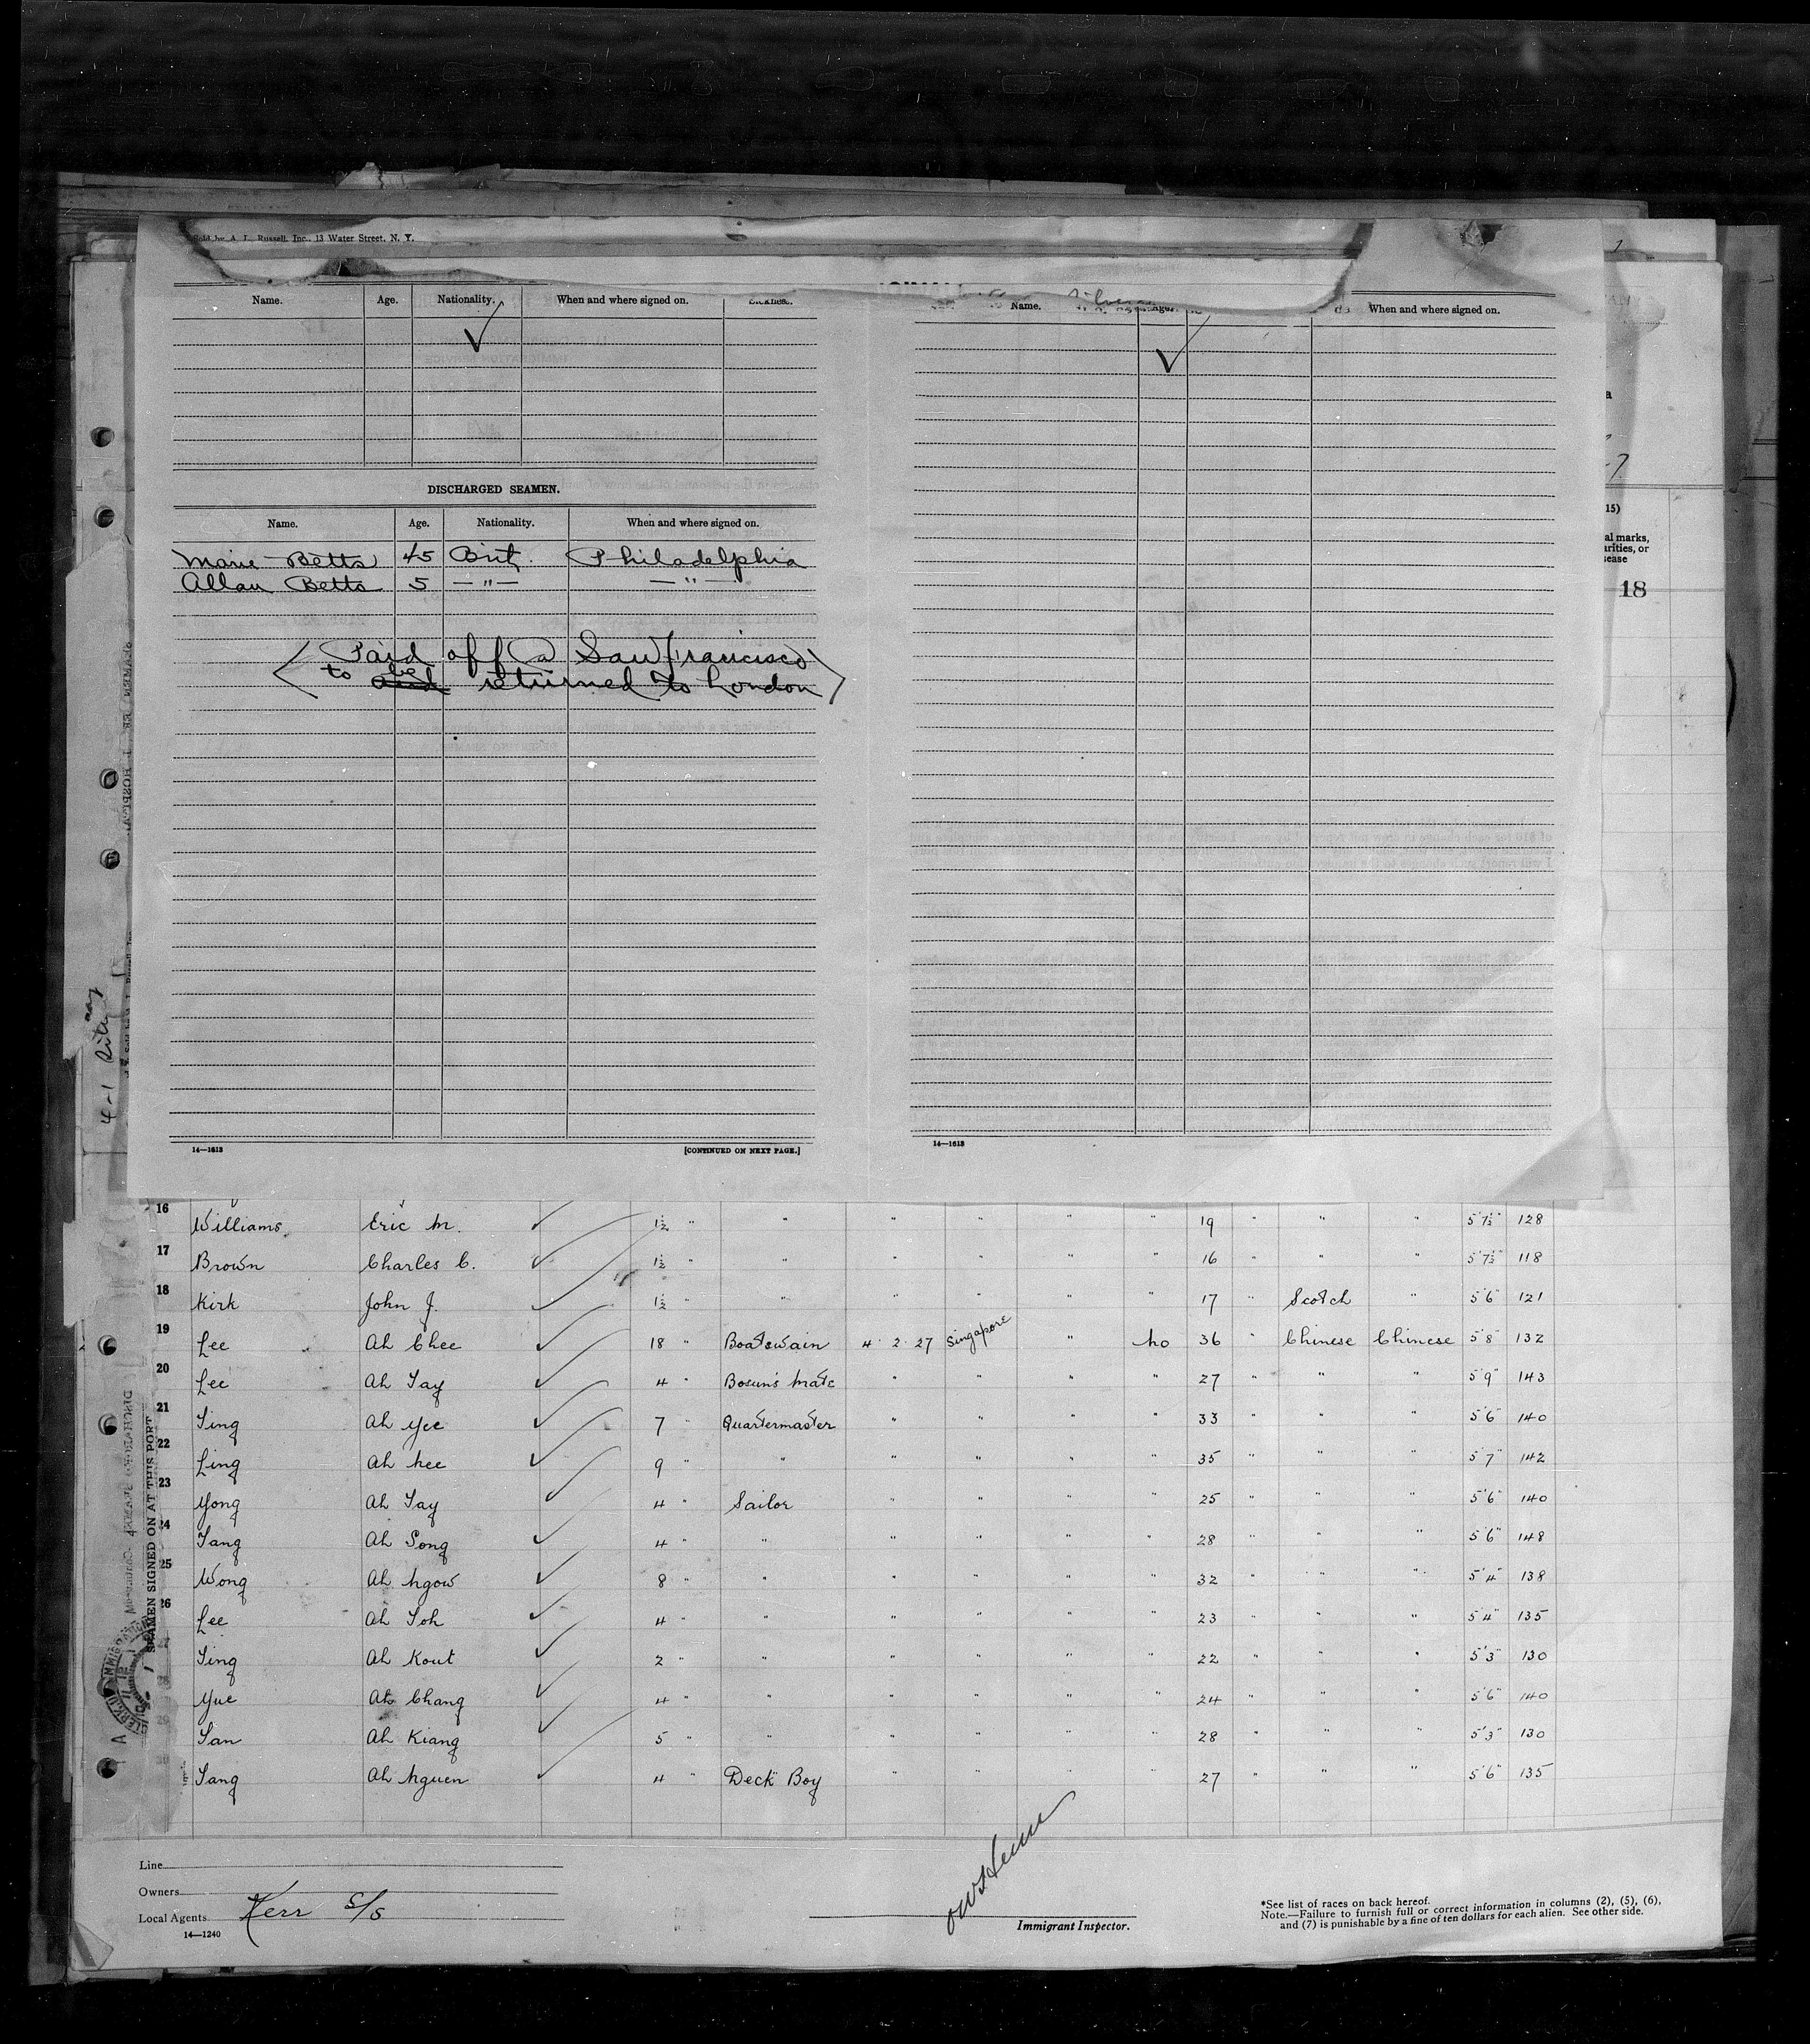 Sold by A. L. Russell, Inc., 13 Water Street, N. Y.
Name. Age. Nationality. When and where signed on. Sickness.
Name. When and where signed on.
DISCHARGED SEAMEN.
Name. Age. Nationality. When and where signed on.
Marie Betts 45 Brit. Philadelphia
Allan Betts 5 —"— —"—
Paid off @ San Francisco
to be returned to London
14—1613 [CONTINUED ON NEXT PAGE.]
14—1613
15)
al marks,
arities, or
sease
18
4-1
SEAMEN SIGNED ON AT THIS PORT
16 Williams Eric M. 1½ " " " " " " 19 " " " 5'7½" 128
17 Brown Charles C. 1½ " " " " 16 " " " 5'7½" 118
18 Kirk John J. 1½ " " " " " " 17 " Scotch " 5'6" 121
19 Lee Ah Chee 18 " Boatswain 4 2 27 Singapore " No 36 " Chinese Chinese 5'8" 132
20 Lee Ah Tay 4 " Bosun's Mate " " " " 27 " " " 5'9" 143
21 Ting Ah Yee 7 " Quartermaster " " " " 33 " " " 5'6" 140
22 Ling Ah Kee 9 " " " " " " 35 " " " 5'7" 142
23 Yong Ah Tay 4 " Sailor " " " " 25 " " " 5'6" 140
24 Tang Ah Song 4 " " " " " " 28 " " " 5'6" 148
25 Wong Ah Ngow 8 " " " " " " 32 " " " 5'4" 138
26 Lee Ah Toh 4 " " " " " " 23 " " " 5'4" 135
Ting Ah Kout 2 " " " " " " 22 " " " 5'3" 130
Yue Ah Chang 4 " " " " " " 24 " " " 5'6" 140
Tan Ah Kiang 5 " " " " " " 28 " " " 5'3" 130
Tang Ah Nguen 4 " Deck Boy " " " " 27 " " " 5'6" 135
Line
Owners
Local Agents Kerr S/S
14—1240
Immigrant Inspector.
*See list of races on back hereof.
Note.—Failure to furnish full or correct information in columns (2), (5), (6),
and (7) is punishable by a fine of ten dollars for each alien. See other side.